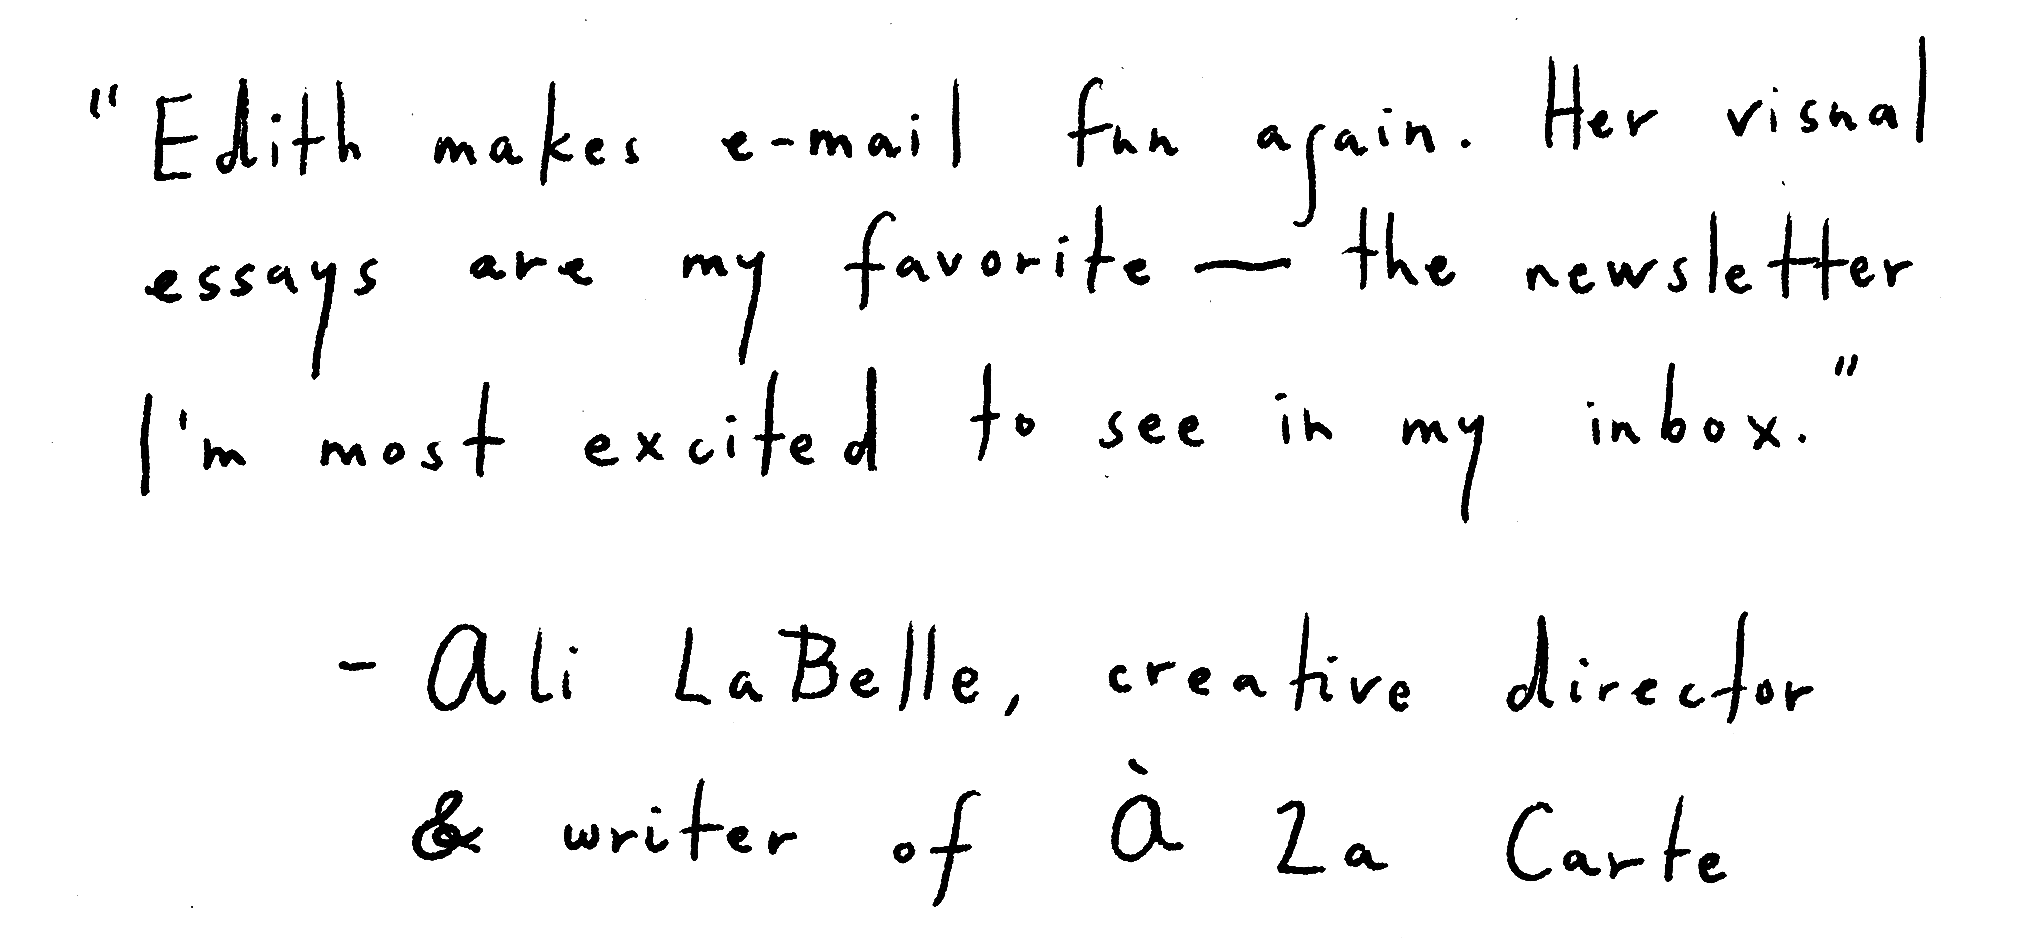 "Edith makes e-mail fun again. Her visual
essays are my favorite — the newsletter
I'm most excited to see in my inbox."
- Ali LaBelle, creative director
& writer of À La Carte